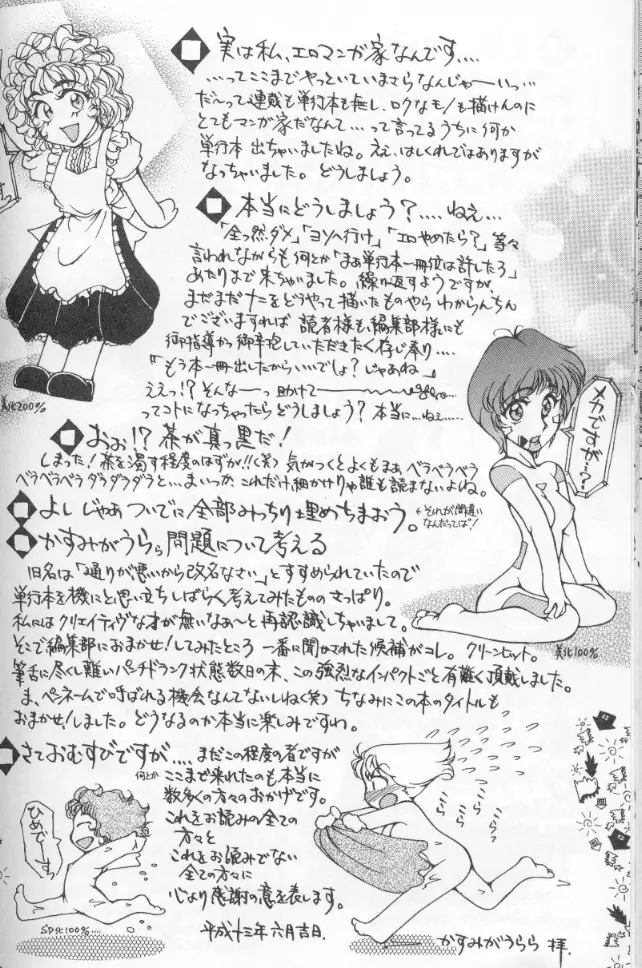 実は私、エロマンガ家なんです....
...ってここまでやっといていまさらなんじゃーいっ...
だ〜って連載も単行本も無し、ロクなモノも描けんのに
とてもマンガ家だなんて...って言ってるうちに何か
単行本 出ちゃいましたね。ええ、はしくれではありますが
なっちゃいました。どうしましょう。
本当にどうしましょう?....ねえ...
「全っ然ダメ」「ヨソへ行け」「エロやめたら?」等々
言われながらも何とか「まぁ単行本一冊位は許したろ」
あたりまで来ちゃいました。繰り返すようですが、
まだまだナニをどうやって描いたものやら わからんちん
でございますれば 読者様も編集部様にも
御指導かつ御辛抱していただきたく存じ奉り....
「もう本一冊出したからいいでしょ?じゃあね」
ええっ!?そんなーっ助けて
ってコトになっちゃったらどうしましょう?本当に...ねえ......
美化200%
メカですが...?
美化100%
おぉ!?茶が真っ黒だ!
しまった!茶を濁す程度のはずが!!(笑) 気がつくとよくもまぁ、ベラベラベラ
ベラベラベラダラダラダラと...まいっか、これだけ細かけりゃ誰も読まないよね。
よしじゃあついでに全部みっちり埋めちまおう。
←それが間違いなんだってば!
かすみがうらら問題について考える
旧名は「通りが悪いから改名なさい」とすすめられていたので
単行本を機にと思い立ちしばらく考えてみたもののさっぱり。
私にはクリエイティヴな才が無いなぁ〜と再認識しちゃいまして。
そこで編集部におまかせ!してみたところ 一番に聞かされた候補がコレ。クリーンヒット。
筆舌に尽くし難いパンチドランク状態数日の末、この強烈なインパクトごと有難く頂戴しました。
ま、ペンネームで呼ばれる機会なんてないしね(笑) ちなみにこの本のタイトルも
おまかせ!しました。どうなるのか本当に楽しみですわ。
さておむすびですが....まだこの程度の者ですが
何とかここまで来れたのも本当に
数多くの方々のおかげです。
これをお読みの全ての
方々と
これをお読みでない
全ての方々に
心より感謝の意を表します。
平成十三年六月吉日.
ひめです。
SD化100%....
うらら
うらら
かすみがうらら 拝.